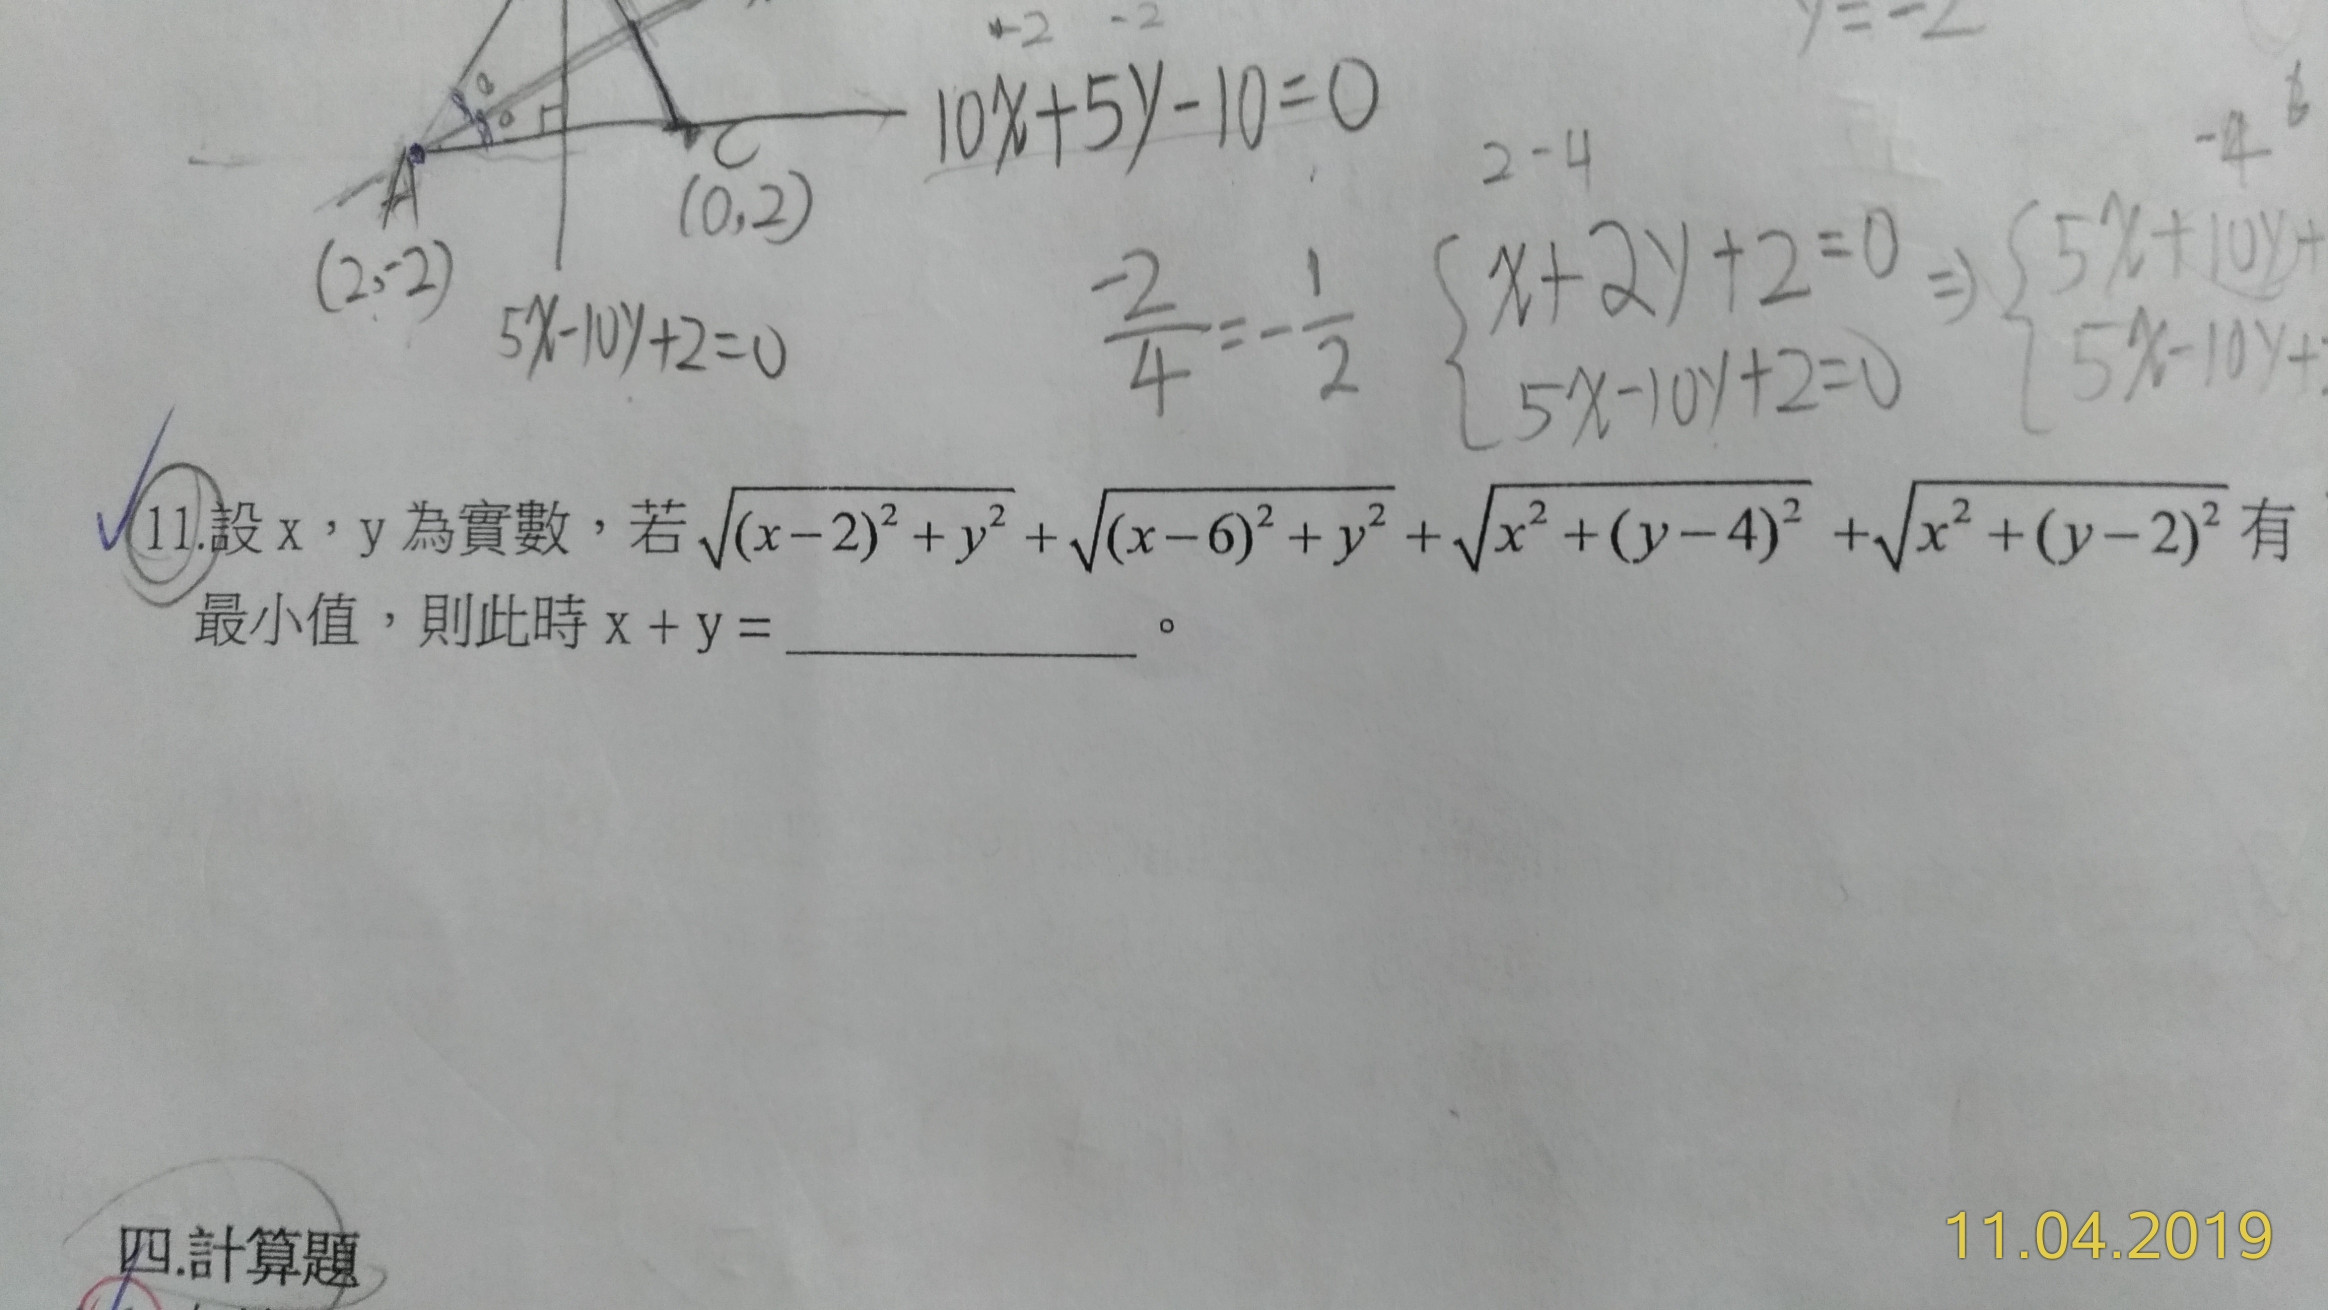 -2 -2
y=-2
10x+5y-10=0
A
(2,-2)
C
(0,2)
5x-10y+2=0
-2/4=-1/2
2-4
{x+2y+2=0
5x-10y+2=0
⇒
-4
{5x+10y+
5x-10y+
11.設 x，y 為實數，若 √((x−2)²+y²) + √((x−6)²+y²) + √(x²+(y−4)²) + √(x²+(y−2)²) 有
最小值，則此時 x + y = ________ 。
四.計算題
11.04.2019